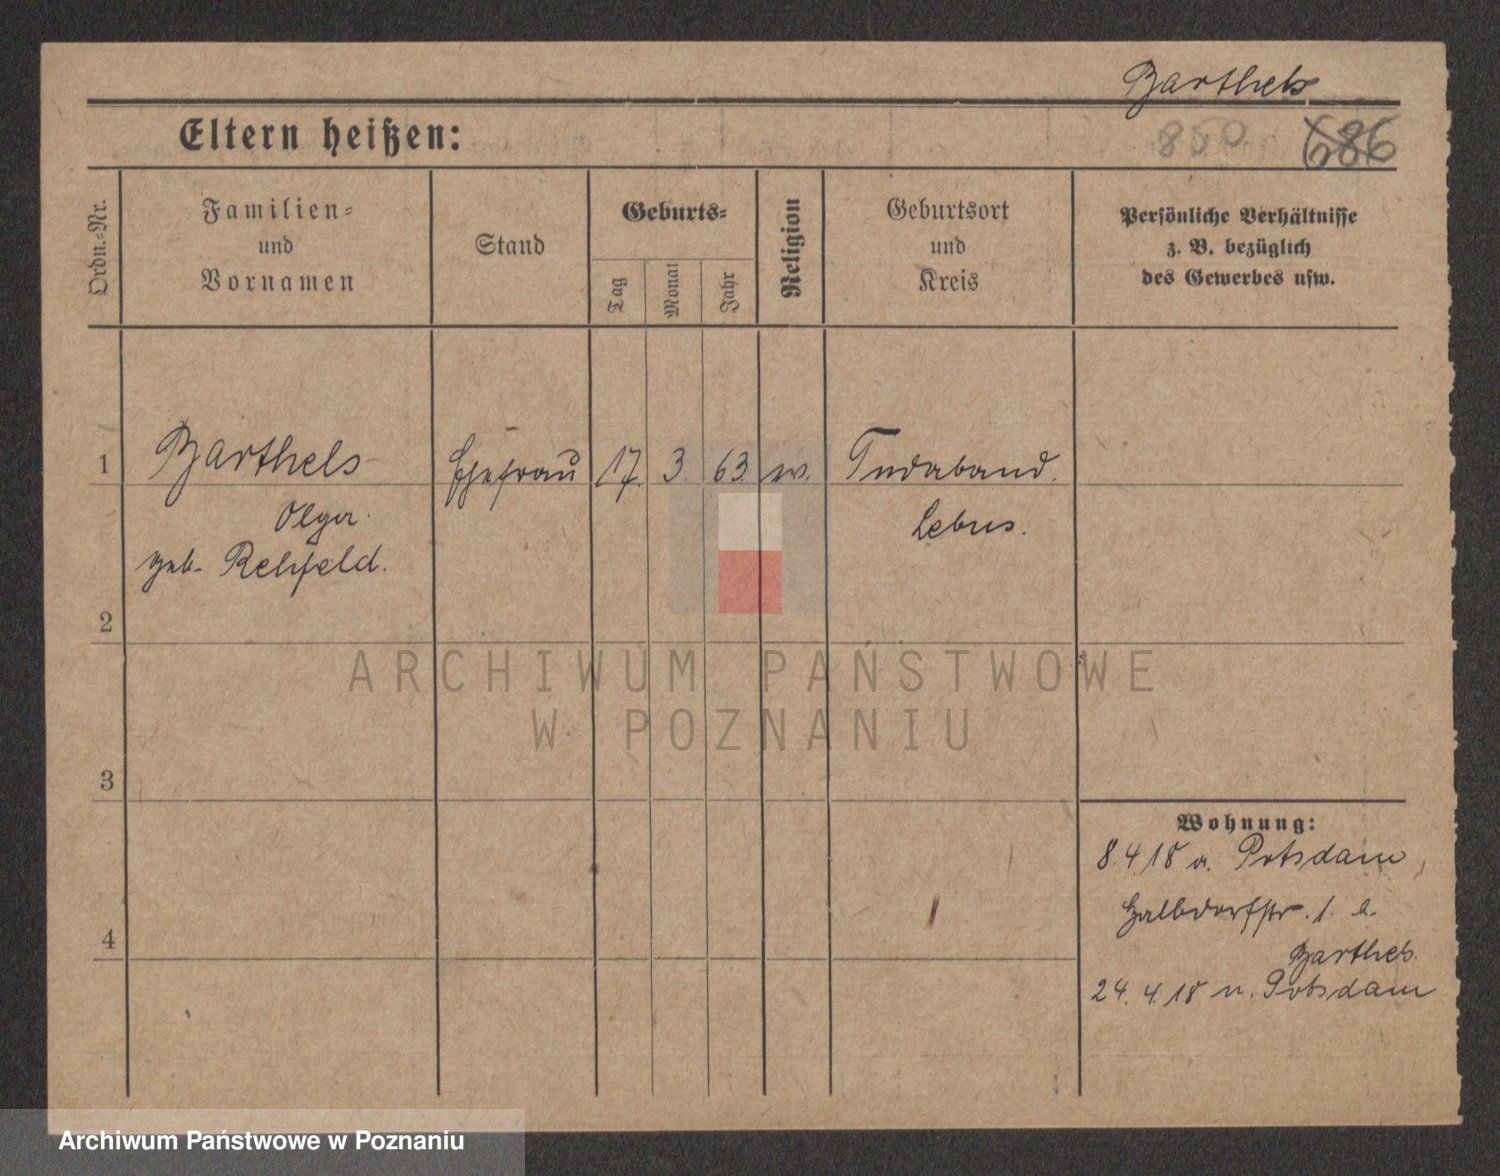 Barthels
Eltern heißen:
850 686
Ordn.-Nr.
Familien-
und
Vornamen
Stand
Geburts-
Tag
Monat
Jahr
Religion
Geburtsort
und
Kreis
Persönliche Verhältnisse
z. B. bezüglich
des Gewerbes usw.
1
Barthels
Ehefrau
17. 3. 63.
Lebus.
Olga
geb. Rehfeld.
2
3
4
Wohnung:
8.4.18 a. Potsdam
1.
Barthels
24.4.18 n. Potsdam
ARCHIWUM PAŃSTWOWE
W POZNANIU
Archiwum Państwowe w Poznaniu